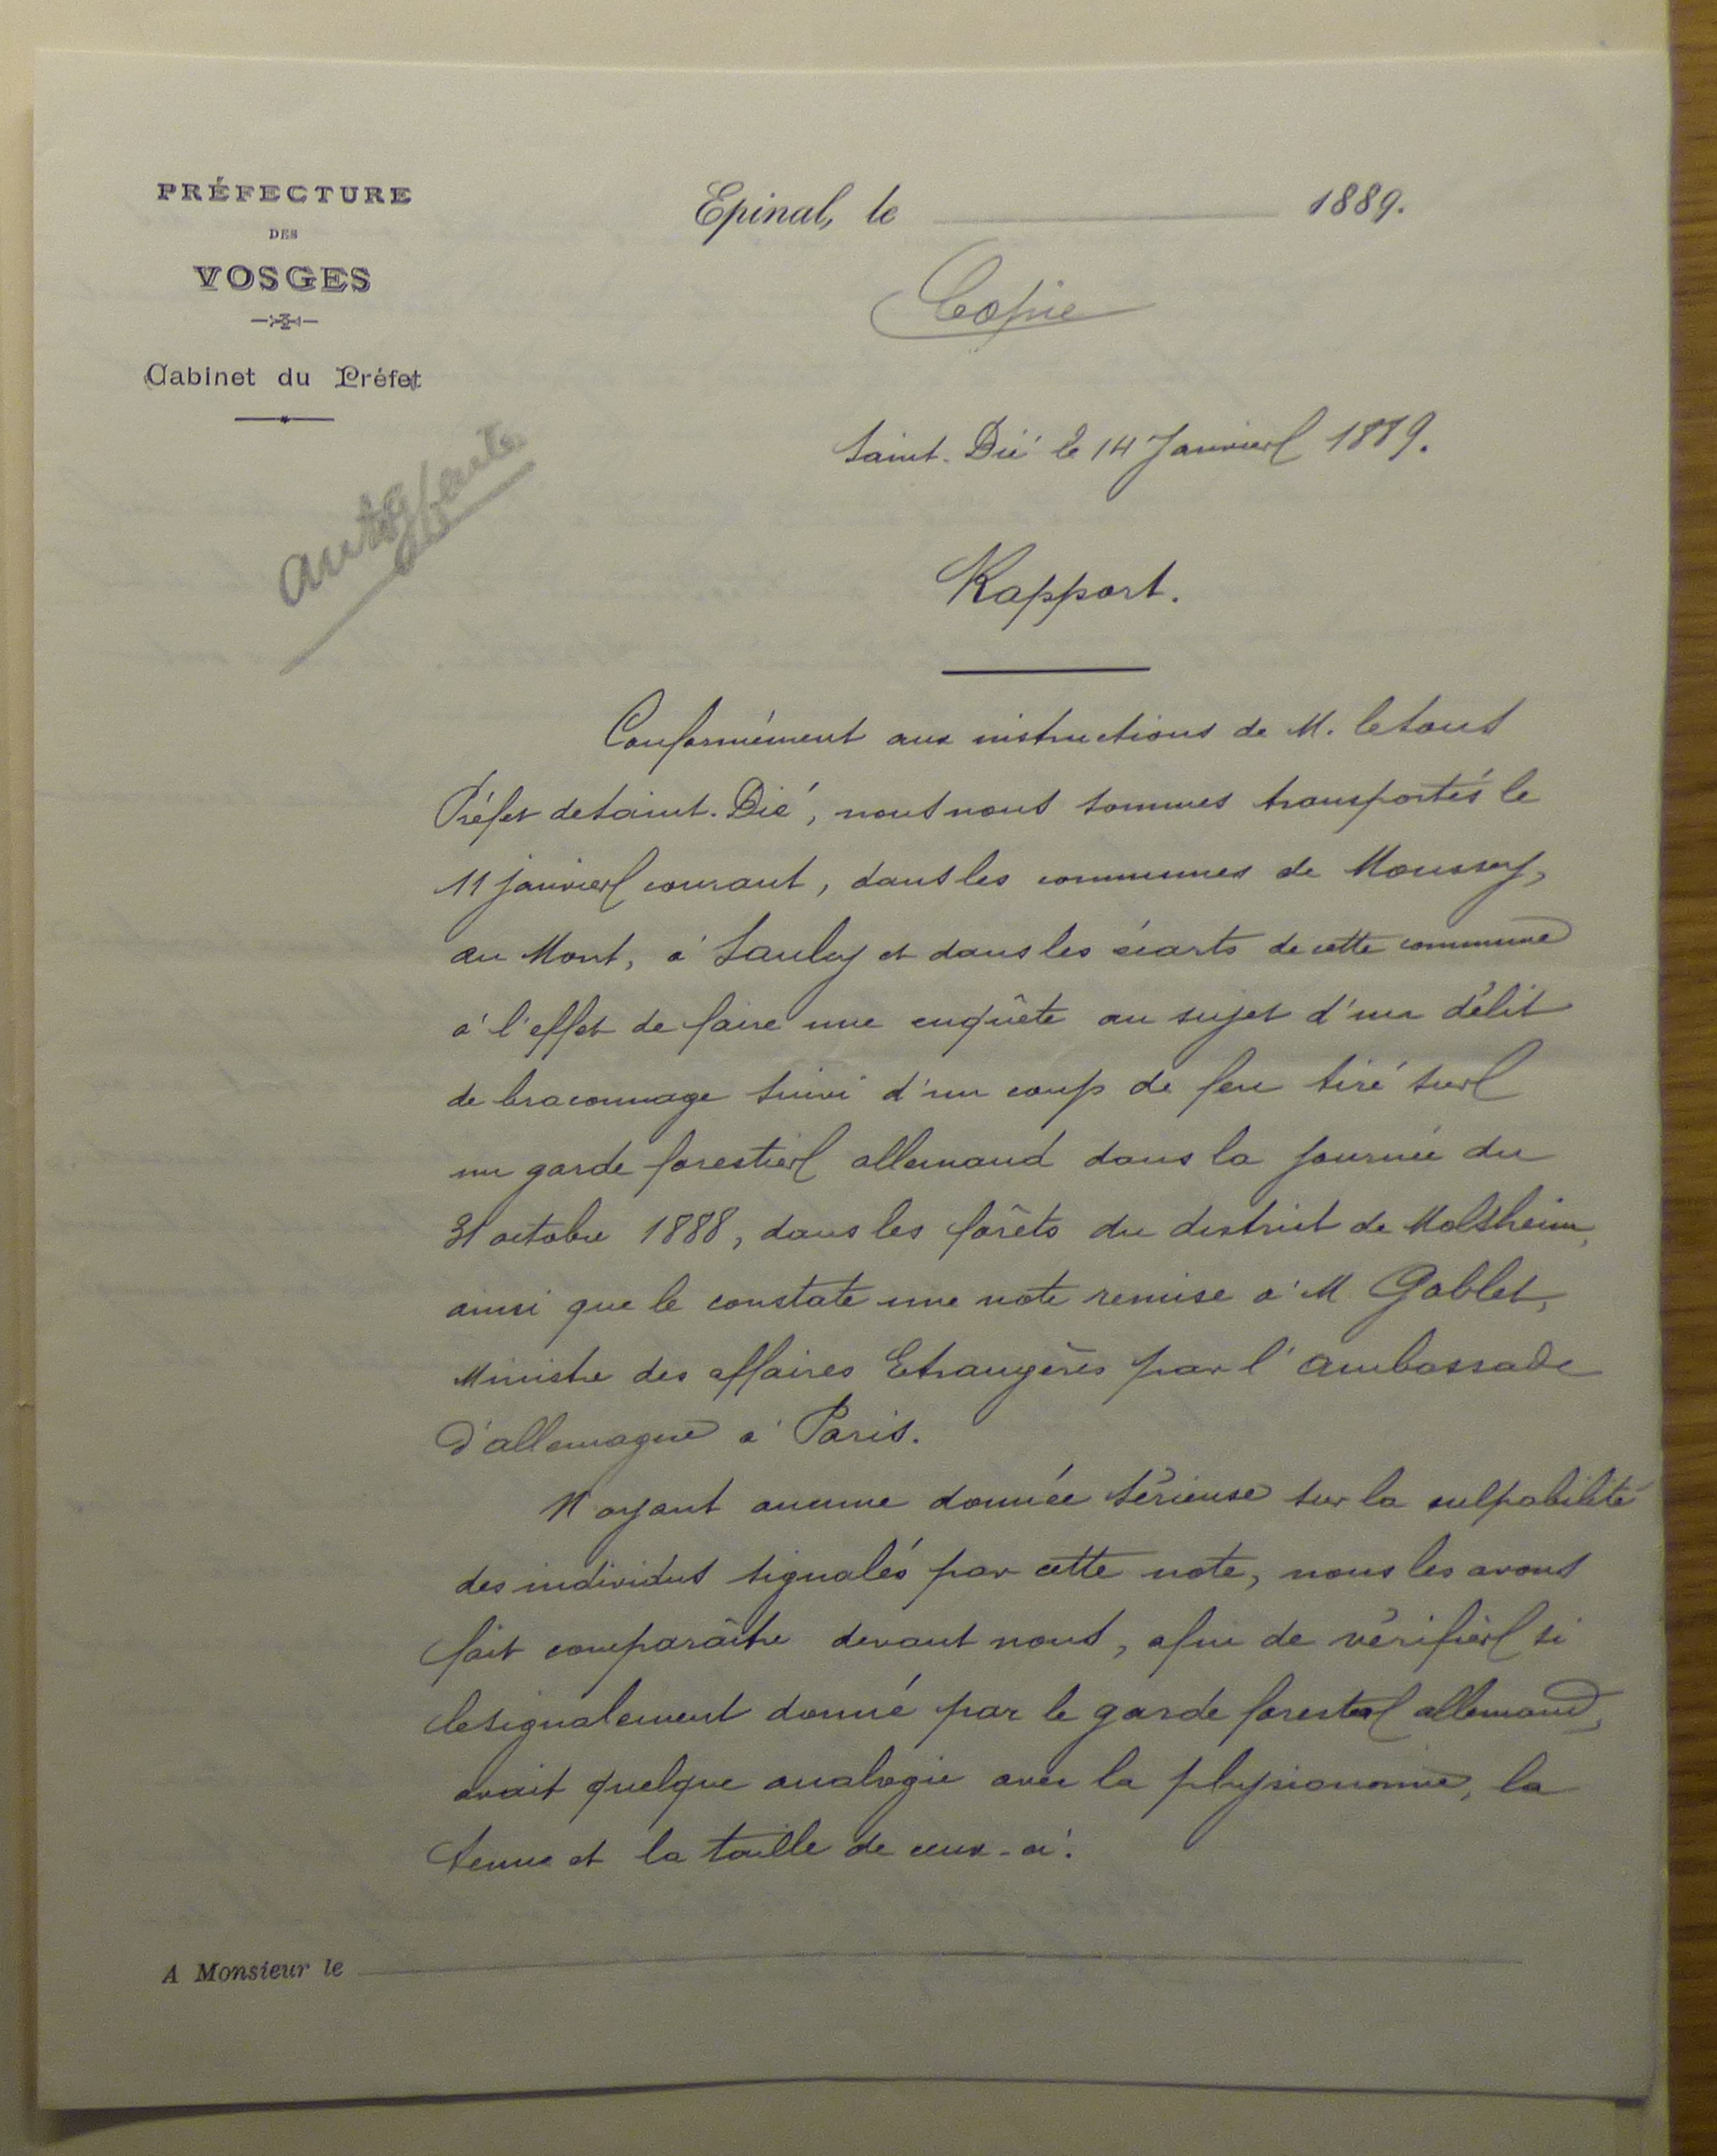 PRÉFECTURE
DES
VOSGES
Cabinet du Préfet
Epinal, le 1889.
Copie
Saint-Dié le 14 Janvier 1889.
Rapport.
Conformément aux instructions de M. le Sous
Préfet de Saint-Dié, nous nous sommes transportés le
11 janvier courant, dans les communes de Moussey,
au Mont, à Saulcy et dans les écarts de cette commune
à l'effet de faire une enquête au sujet d'un délit
de braconnage suivi d'un coup de feu tiré sur
un garde forestier allemand dans la journée du
31 octobre 1888, dans les forêts du district de Molsheim,
ainsi que le constate une note remise à M. Goblet,
Ministre des affaires Etrangères par l'ambassade
d'allemagne à Paris.
N'ayant aucune donnée sérieuse sur la culpabilité
des individus signalés par cette note, nous les avons
fait comparaître devant nous, afin de vérifier si
le signalement donné par le garde forestier allemand,
avait quelque analogie avec la physionomie, la
tenue et la taille de ceux-ci.
A Monsieur le